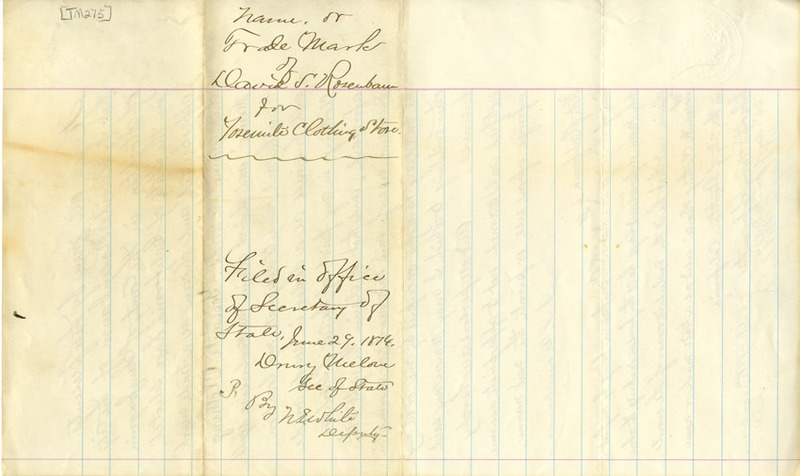 [TM275]
Name, or
Trade Mark
of
David S. Rosenbaum
for
Yosemite Clothing Store.
Filed in office
of Secretary of
State, June 29. 1876.
Drury Melone
Sec of State
By
White
Deputy